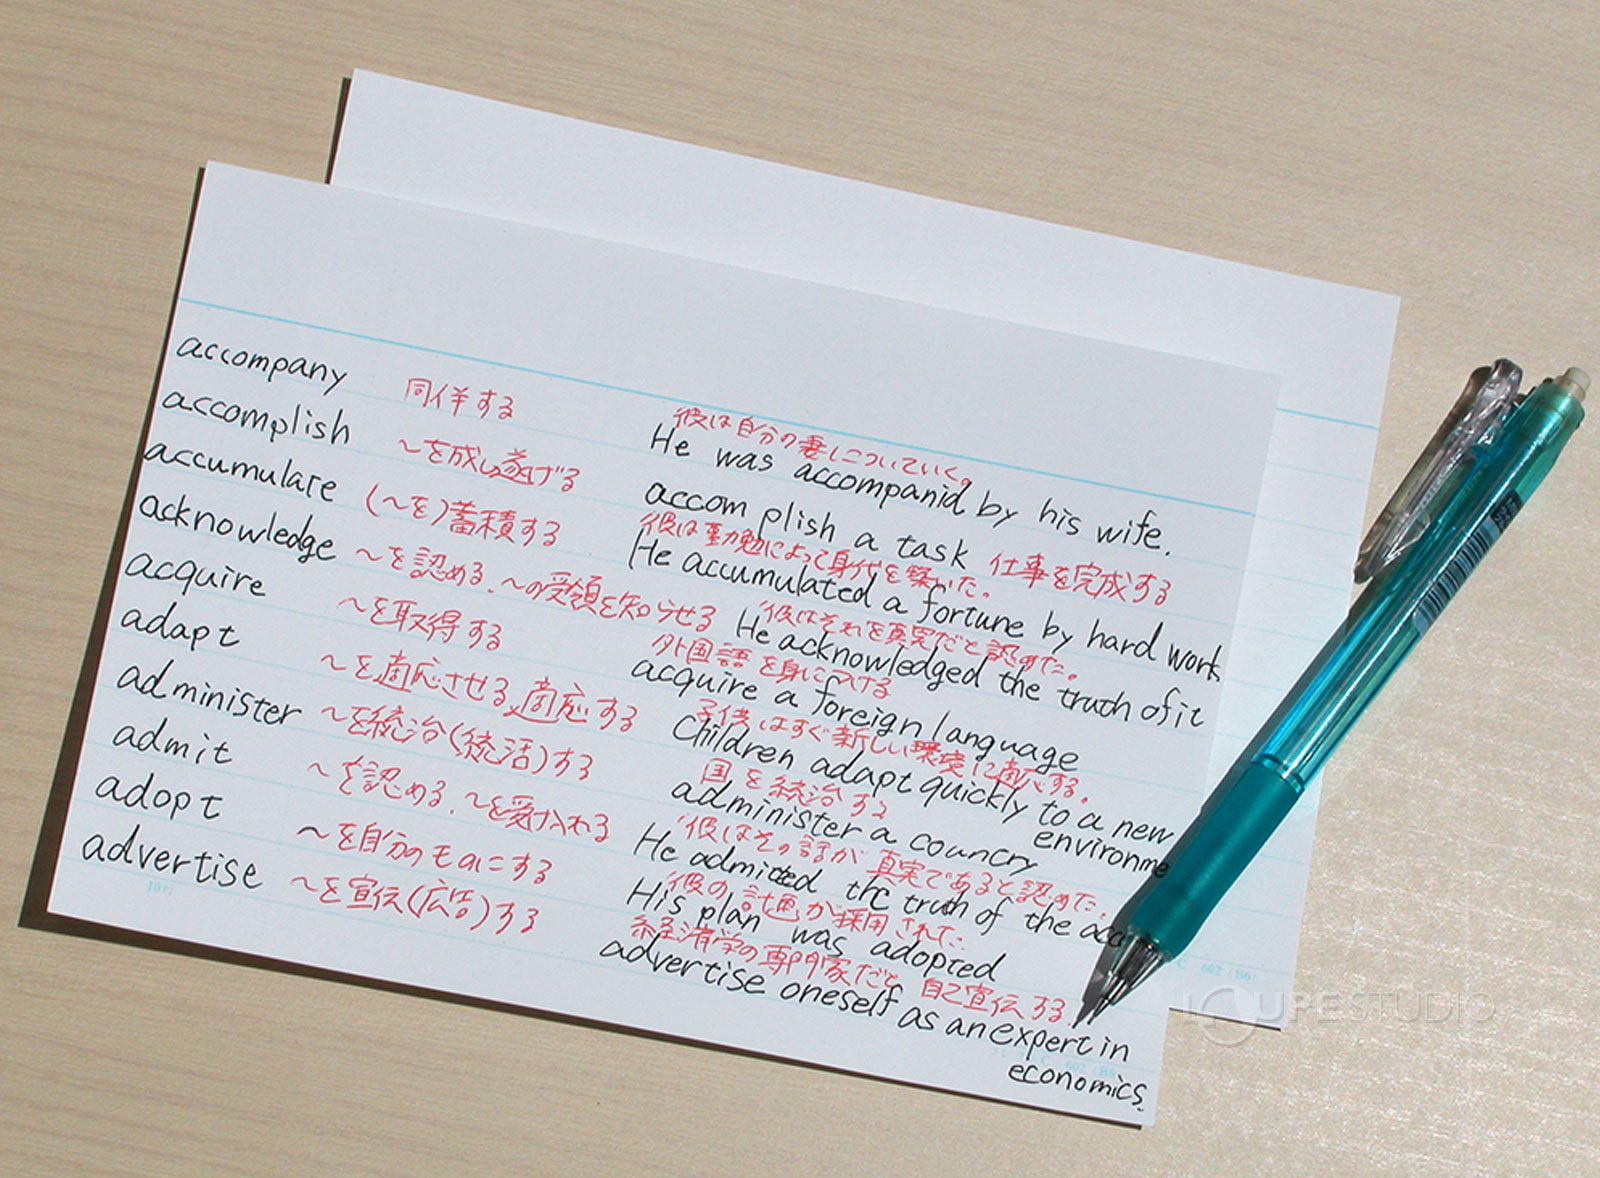 accompany 同伴する
accomplish ～を成し遂げる
accumulare (～を)蓄積する
acknowledge ～を認める、～の受領を知らせる
acquire ～を取得する
adapt ～を適応させる、適応する
administer ～を統治(統活)する
admit ～を認める、～を受け入れる
adopt ～を自分のものにする
advertise ～を宣伝(広告)する
彼は自分の妻についていく。
He was accompanid by his wife.
accomplish a task 仕事を完成する
彼は勤勉によって身代を築いた。
He accumulated a fortune by hard work
彼はそれを真実だと認めた。
He acknowledged the truth of it
外国語を身につける
acquire a foreign language
子供はすぐ新しい環境に適応する。
Children adapt quickly to a new
environme
国を統治する
administer a councry
彼はその話が真実であると認めた。
He admitted the truth of the acc
彼の計画が採用された。
His plan was adopted
経済学の専門家だと自己宣伝する。
advertise oneself as an expert in
economics.
602 / B6
LOUPE STUDIO